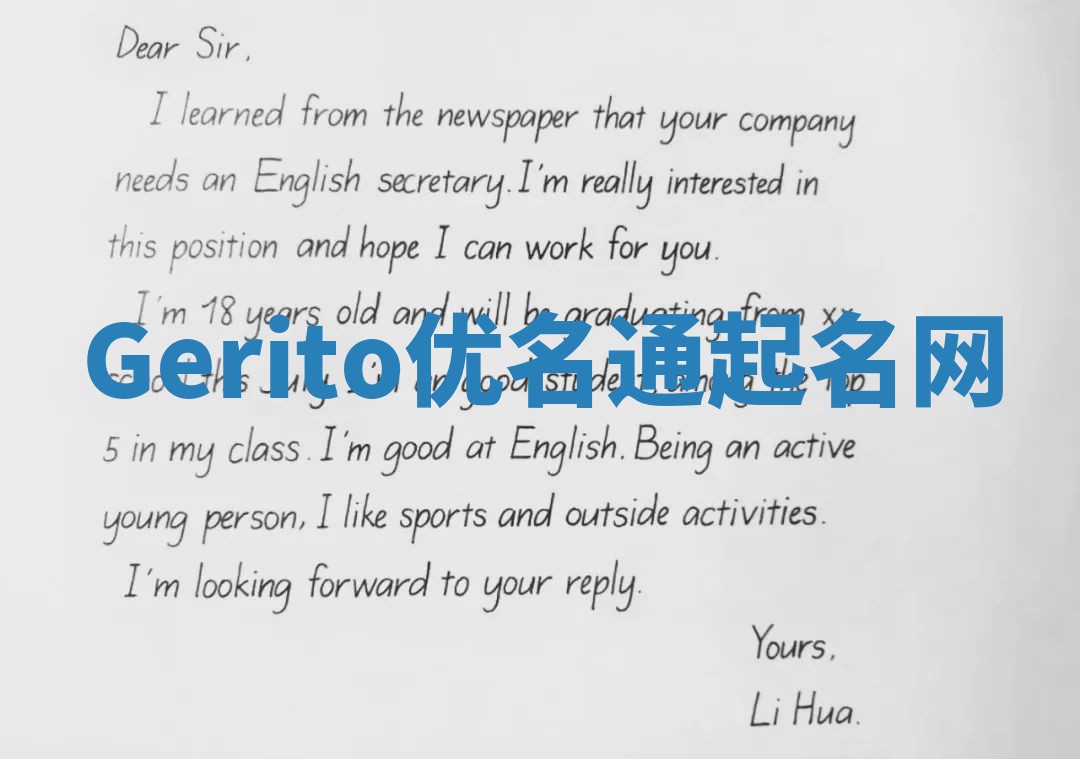 Dear Sir,
I learned from the newspaper that your company
needs an English secretary. I'm really interested in
this position and hope I can work for you.
I'm 18 years old and will be graduating from xx
Gerito优名通起名网
this July. I'm good student among the Top
5 in my class. I'm good at English. Being an active
young person, I like sports and outside activities.
I'm looking forward to your reply.
Yours,
Li Hua.